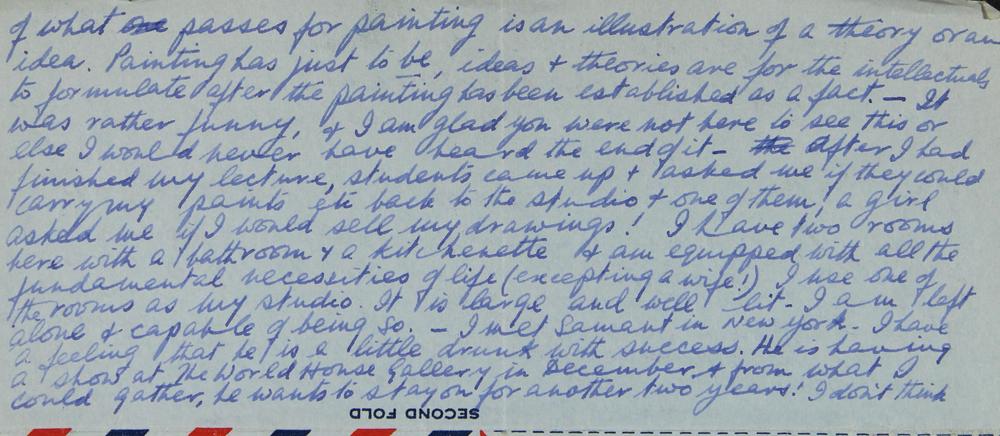 of what passes for painting is an illustration of a theory or an
idea. Painting has just to be, ideas & theories are for the intellectuals
to formulate after the painting has been established as a fact. — It
was rather funny, & I am glad you were not here to see this or
else I would never have heard the end of it - the After I had
finished my lecture, students came up & asked me if they could
carry my paints etc back to the studio & one of them, a girl
asked me if I would sell my drawings! I have two rooms
here with a bathroom & a kitchenette & am equipped with all the
fundamental necessities of life (excepting a wife!) I use one of
the rooms as my studio. It is large and well lit - I am left
alone & capable of being so. — I met Samant in New York - I have
a feeling that he is a little drunk with success. He is having
a show at the World House Gallery in December, & from what I
could gather, he wants to stay on for another two years! I don't think
SECOND FOLD